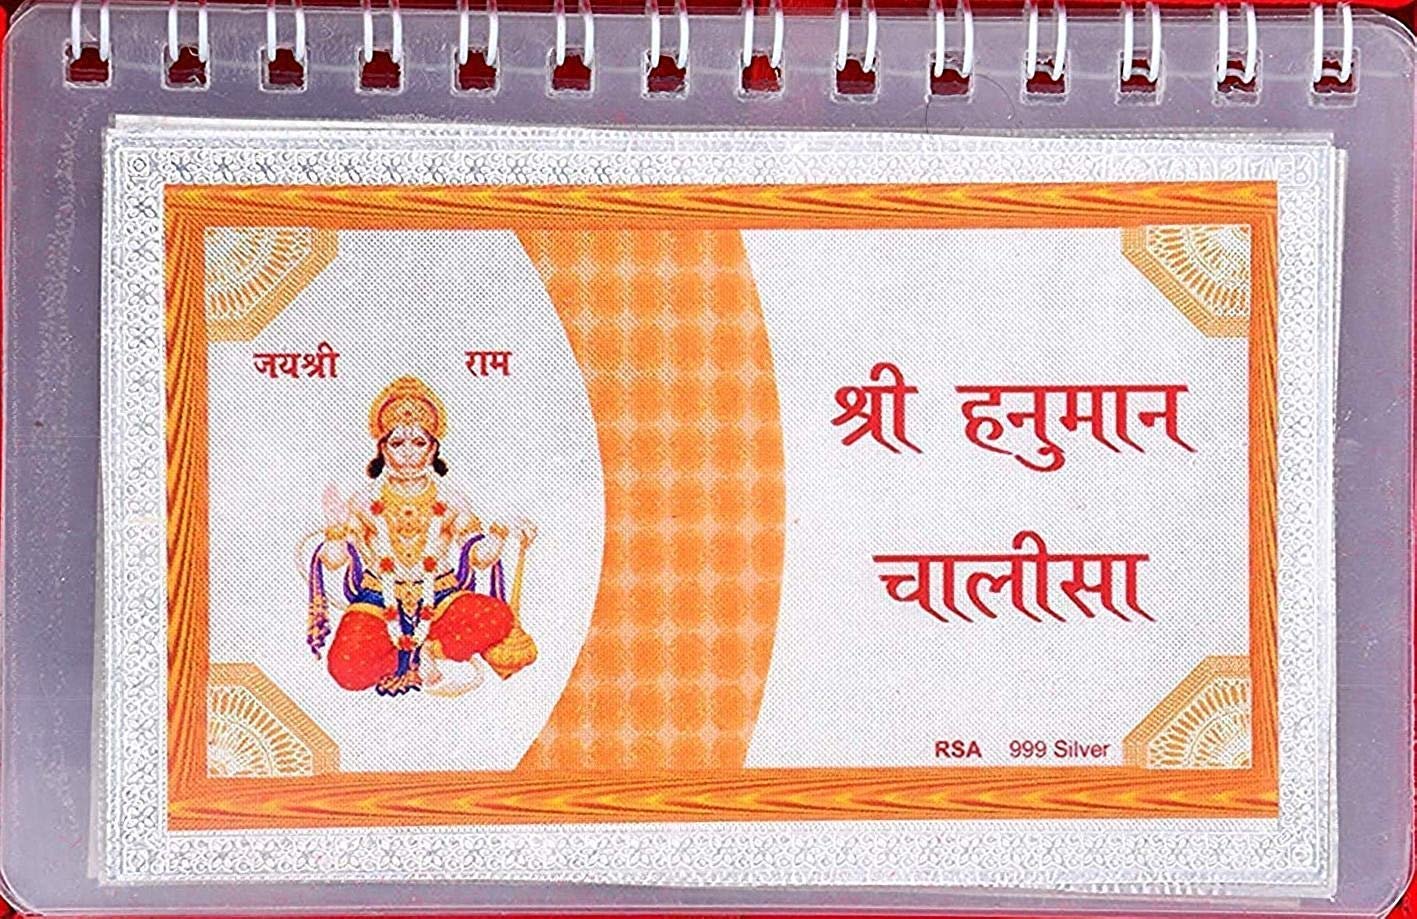 जयश्री राम
श्री हनुमान
चालीसा
RSA 999 Silver